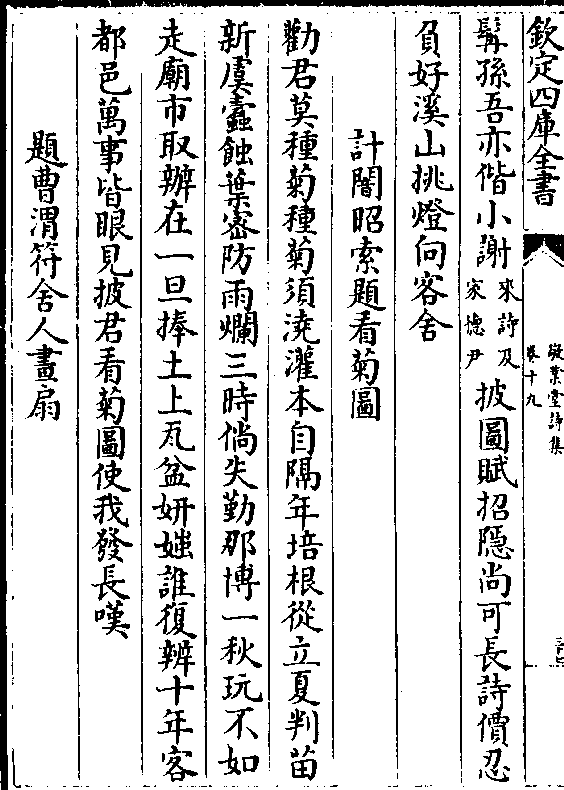 欽定四庫全書
敬業堂詩集
卷十九
髯孫吾亦偕小謝來詩及家德尹披圖賦招隱尚可長詩價忍
負好溪山挑燈向客舍
計闇昭索題看菊圖
勸君莫種菊種菊須澆灌本自隔年培根從立夏判苗
新虞蠧蝕葉密防雨爛三時倘失勤那博一秋玩不如
走廟市取辦在一旦捧土上瓦盆妍媸誰復辨十年客
都邑萬事皆眼見披君看菊圖使我發長嘆
題曹渭符舍人畫扇